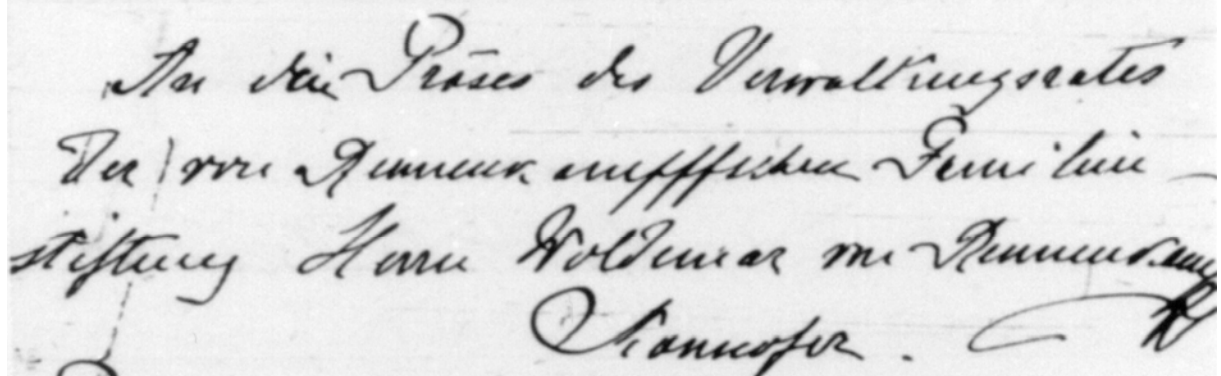 An den Präses des Verwaltungsrates
der von Rennenkampffschen Familien-
stiftung Herrn Woldemar von Rennenkampff